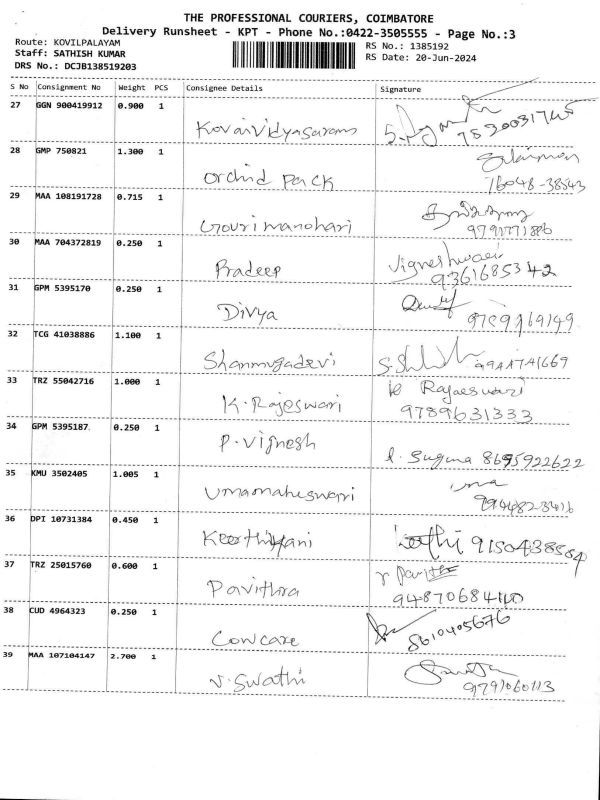 THE PROFESSIONAL COURIERS, COIMBATORE
Delivery Runsheet - KPT - Phone No.:0422-3505555 - Page No.:3
Route: KOVILPALAYAM
Staff: SATHISH KUMAR
DRS No.: DCJB138519203
RS No.: 1385192
RS Date: 20-Jun-2024
S No Consignment No Weight PCS Consignee Details Signature
27 GGN 900419912 0.900 1
Kovaividyasaram
28 GMP 750821 1.300 1
Orchid Pack
29 MAA 108191728 0.715 1
Gourimanohari
30 MAA 704372819 0.250 1
Pradeep Vigneshwari
9361685342
31 GPM 5395170 0.250 1
Divya
32 TCG 41038886 1.100 1
Shanmugadevi
33 TRZ 55042716 1.000 1
K. Rajeswari Rajaeswari
9789631333
34 GPM 5395187 0.250 1
P. Vignesh
Suguna 8695922622
35 KMU 3502405 1.005 1
Umamaheswari
36 DPI 10731384 0.450 1
37 TRZ 25015760 0.600 1
Pavithra
9487068440
38 CUD 4964323 0.250 1
Cowcare 8610405676
39 MAA 107104147 2.700 1
V. Swathi 9791060113